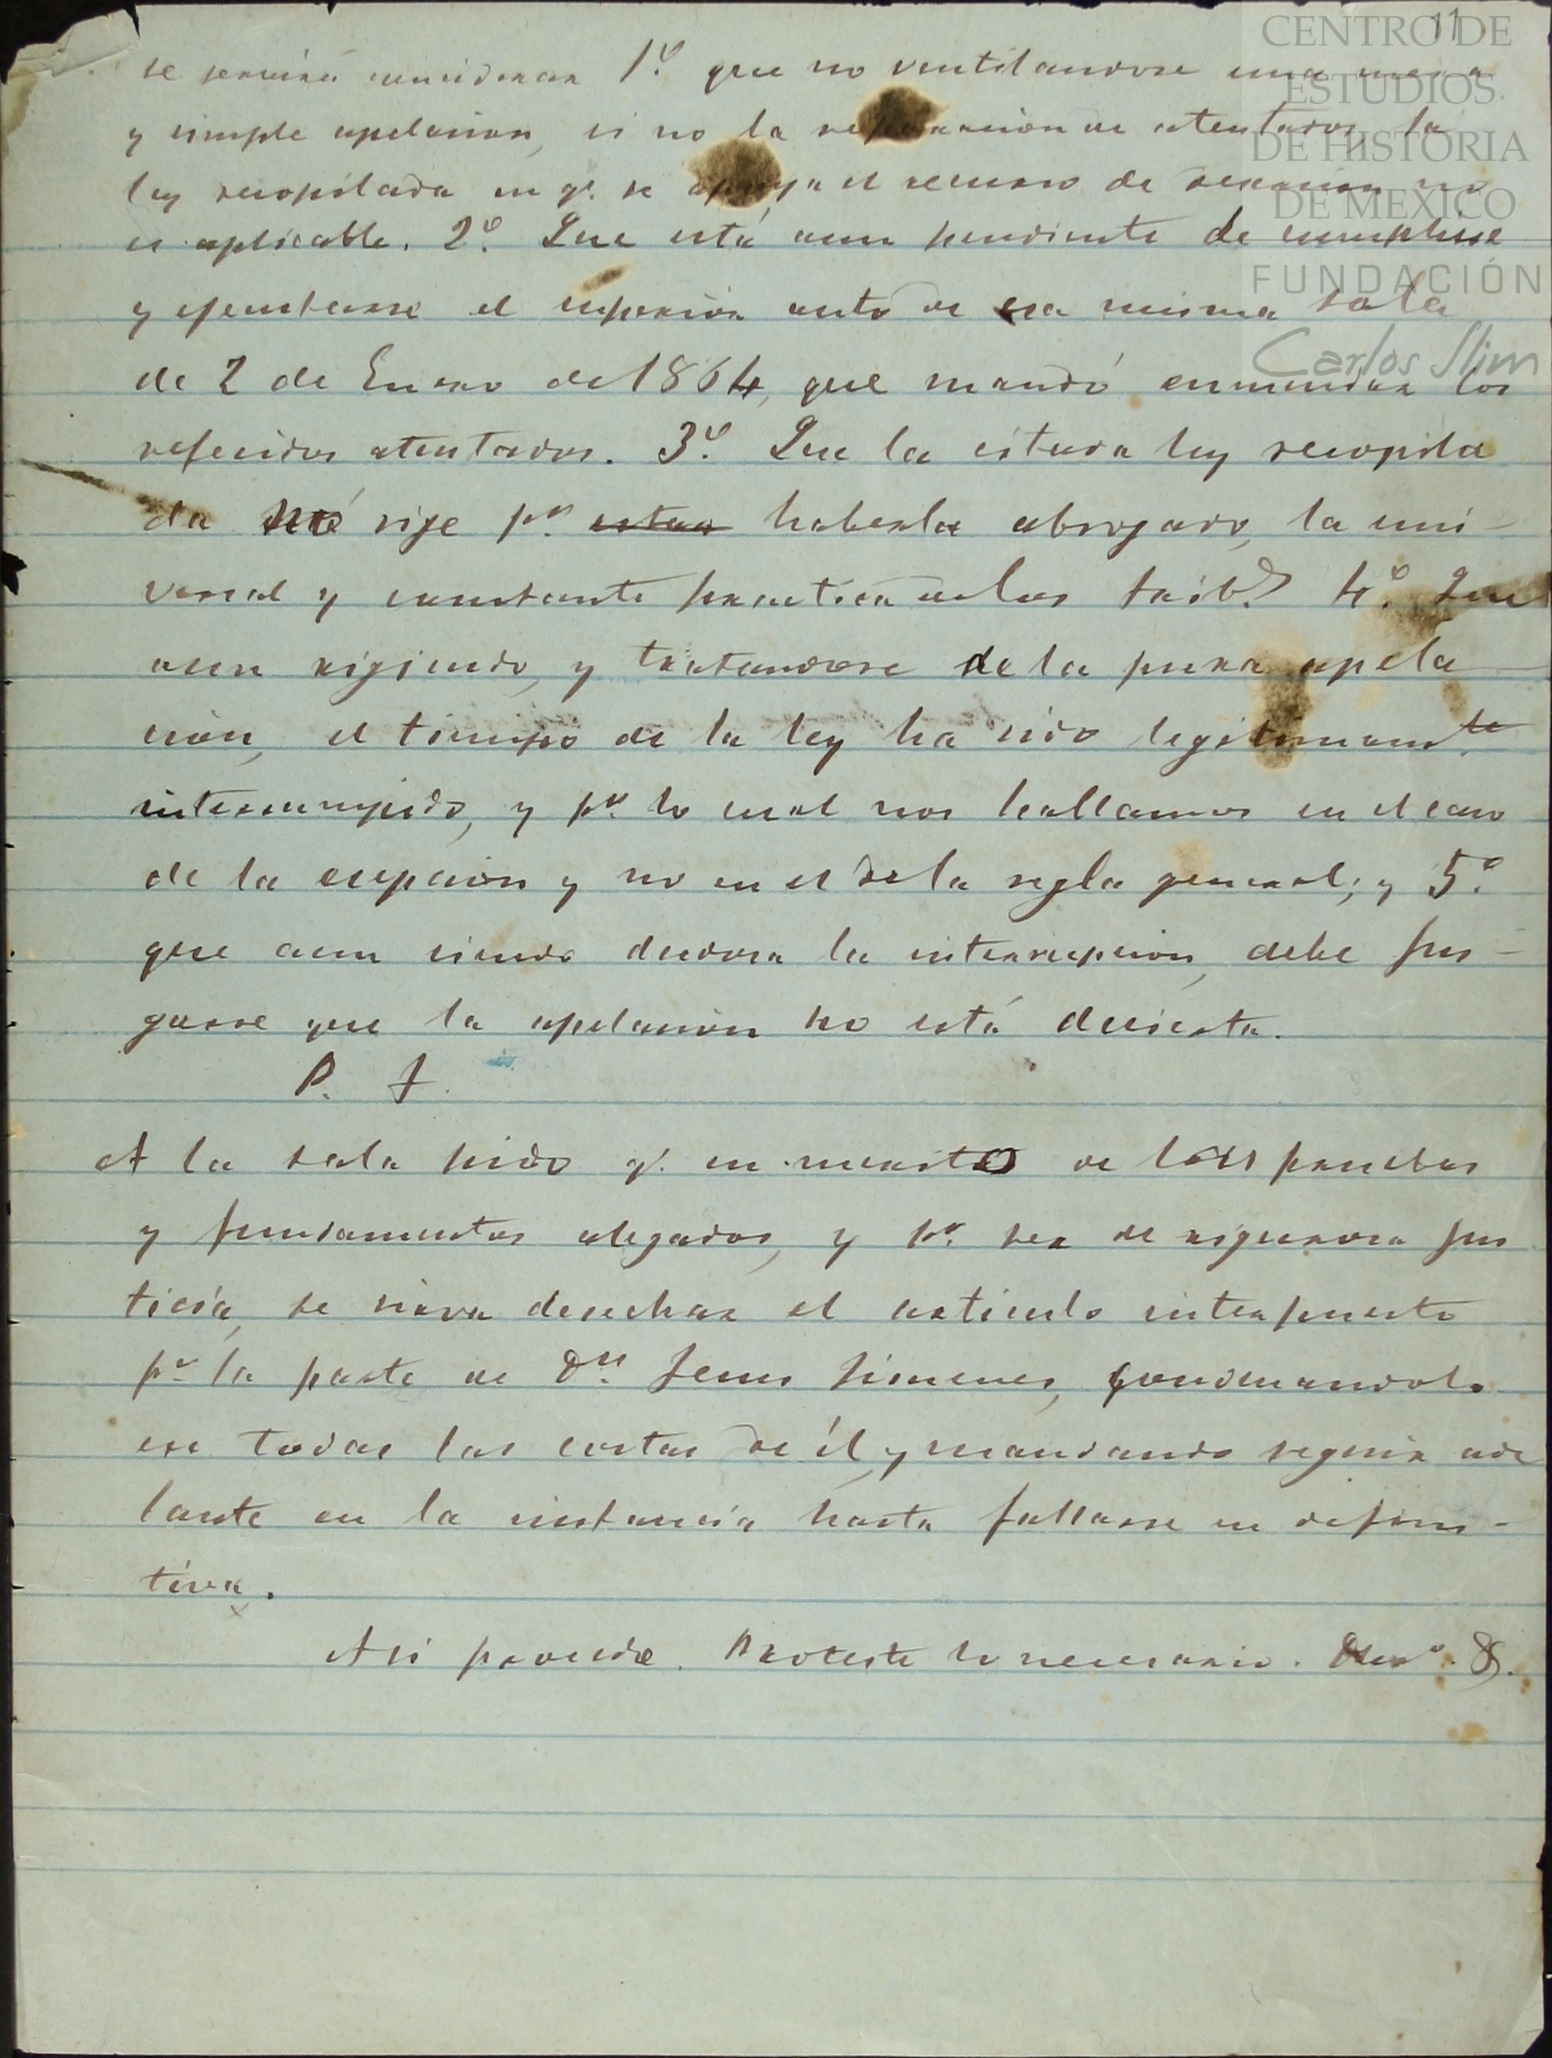 11
CENTRO DE
ESTUDIOS
DE HISTORIA
DE MEXICO
FUNDACIÓN
Carlos Slim
se servirá considerar 1.º que no ventilandose una mera
y simple apelacion, si no la reparacion de atentados, la
ley recopilada en q.e se apoya el recurso de desercion no
es aplicable. 2.º Que está aun pendiente de cumplirse
y ejecutarse el superior auto de esa misma sala
de 2 de Enero de 1864, que mandó enmendar los
referidos atentados. 3.º Que la citada ley recopila
da no rige p.r estar haberla abrogado, la uni-
versal y constante practica de los trib.s 4.º Que
aun rigiendo, y tratandose de la pura apela
cion, el tiempo de la ley ha sido legitimam.te
interrumpido, y p.r lo cual nos hallamos en el caso
de la escepcion y no en el de la regla general; y 5.º
que aun siendo dudosa la interrupcion, debe jus-
garse que la apelacion no está decierta.
P. J.
A la sala pido q.e en merito de las pruebas
y fundamentos alegados, y p.r ser de rigurosa jus
ticia, se sirva desechar el articulo interpuesto
p.r la parte de D.n Jesus Jimenes, condenandolo
en todas las costas de él, y mandando seguir ade
lante en la instancia hasta fallarse en defini-
tiva.
Asi procede. Protesto lo necesario.